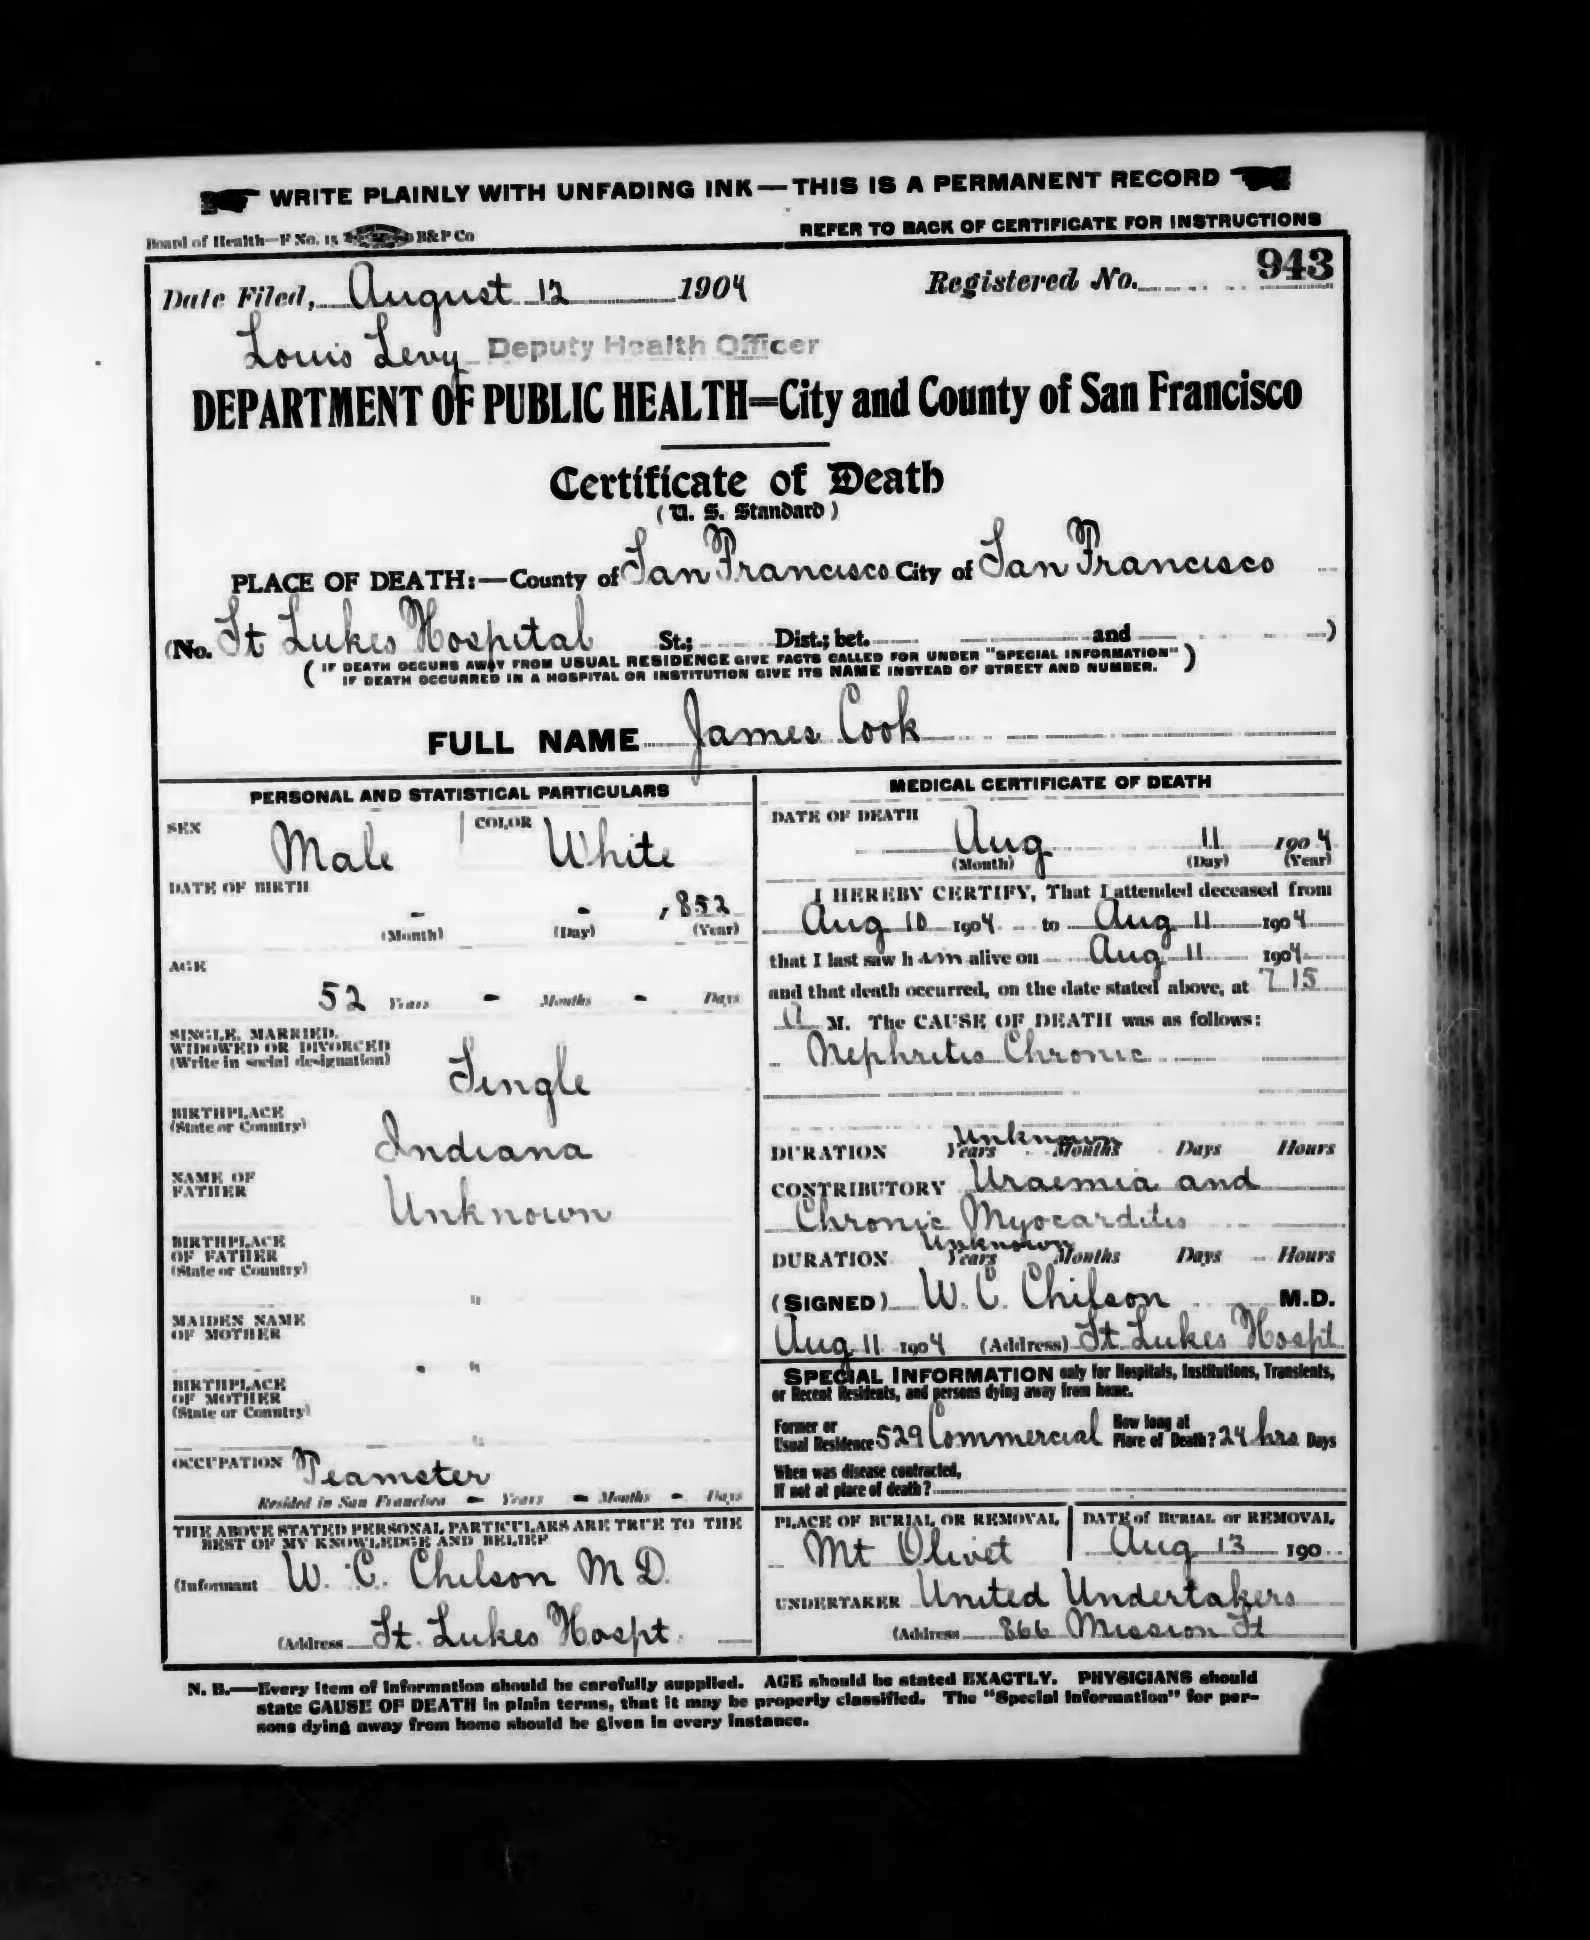 WRITE PLAINLY WITH UNFADING INK—THIS IS A PERMANENT RECORD
Board of Health—F No. 15 B&P Co
REFER TO BACK OF CERTIFICATE FOR INSTRUCTIONS
Date Filed, August 12 1904 Registered No. 943
Louis Levy Deputy Health Officer
DEPARTMENT OF PUBLIC HEALTH=City and County of San Francisco
Certificate of Death
(U. S. Standard)
PLACE OF DEATH:—County of San Francisco City of San Francisco
(No. St Lukes Hospital St.; Dist.; bet. and )
(IF DEATH OCCURS AWAY FROM USUAL RESIDENCE GIVE FACTS CALLED FOR UNDER "SPECIAL INFORMATION"
IF DEATH OCCURRED IN A HOSPITAL OR INSTITUTION GIVE ITS NAME INSTEAD OF STREET AND NUMBER.)
FULL NAME James Cook
PERSONAL AND STATISTICAL PARTICULARS
SEX Male COLOR White
DATE OF BIRTH
- - , 852
(Month) (Day) (Year)
AGE
52 Years - Months - Days
SINGLE, MARRIED,
WIDOWED OR DIVORCED
(Write in social designation) Single
BIRTHPLACE
(State or Country) Indiana
NAME OF
FATHER Unknown
BIRTHPLACE
OF FATHER
(State or Country)
"
MAIDEN NAME
OF MOTHER
"
BIRTHPLACE
OF MOTHER
(State or Country)
"
OCCUPATION Teamster
Resided in San Francisco - Years - Months - Days
THE ABOVE STATED PERSONAL PARTICULARS ARE TRUE TO THE
BEST OF MY KNOWLEDGE AND BELIEF
(Informant W. C. Chilson M D.
(Address St. Lukes Hospt.
MEDICAL CERTIFICATE OF DEATH
DATE OF DEATH
Aug 11 1904
(Month) (Day) (Year)
I HEREBY CERTIFY, That I attended deceased from
Aug 10 1904 to Aug 11 1904
that I last saw h im alive on Aug 11 1904
and that death occurred, on the date stated above, at 7 15
A M. The CAUSE OF DEATH was as follows:
Nephritis Chronic
Unknown
DURATION Years Months Days Hours
CONTRIBUTORY Uraemia and
Chronic Myocarditis
Unknown
DURATION Years Months Days Hours
(SIGNED) W. C. Chilson M.D.
Aug 11 1904 (Address) St. Lukes Hospt.
SPECIAL INFORMATION only for Hospitals, Institutions, Transients,
or Recent Residents, and persons dying away from home.
Former or
Usual Residence 529 Commercial How long at
Place of Death? 24 hrs Days
When was disease contracted,
If not at place of death?
PLACE OF BURIAL OR REMOVAL DATE of BURIAL or REMOVAL
Mt Olivet Aug 13 190
UNDERTAKER United Undertakers
(Address 866 Mission St
N. B.—Every item of information should be carefully supplied. AGE should be stated EXACTLY. PHYSICIANS should
state CAUSE OF DEATH in plain terms, that it may be properly classified. The "Special Information" for per-
sons dying away from home should be given in every instance.